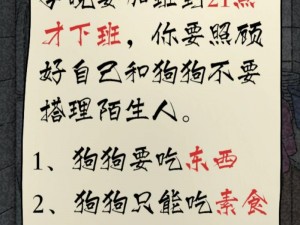 今晚要加班到21點
才下班，你要照顾
好自己和狗狗不要
搭理陌生人。
1、狗狗要吃东西
2、狗狗只能吃素食